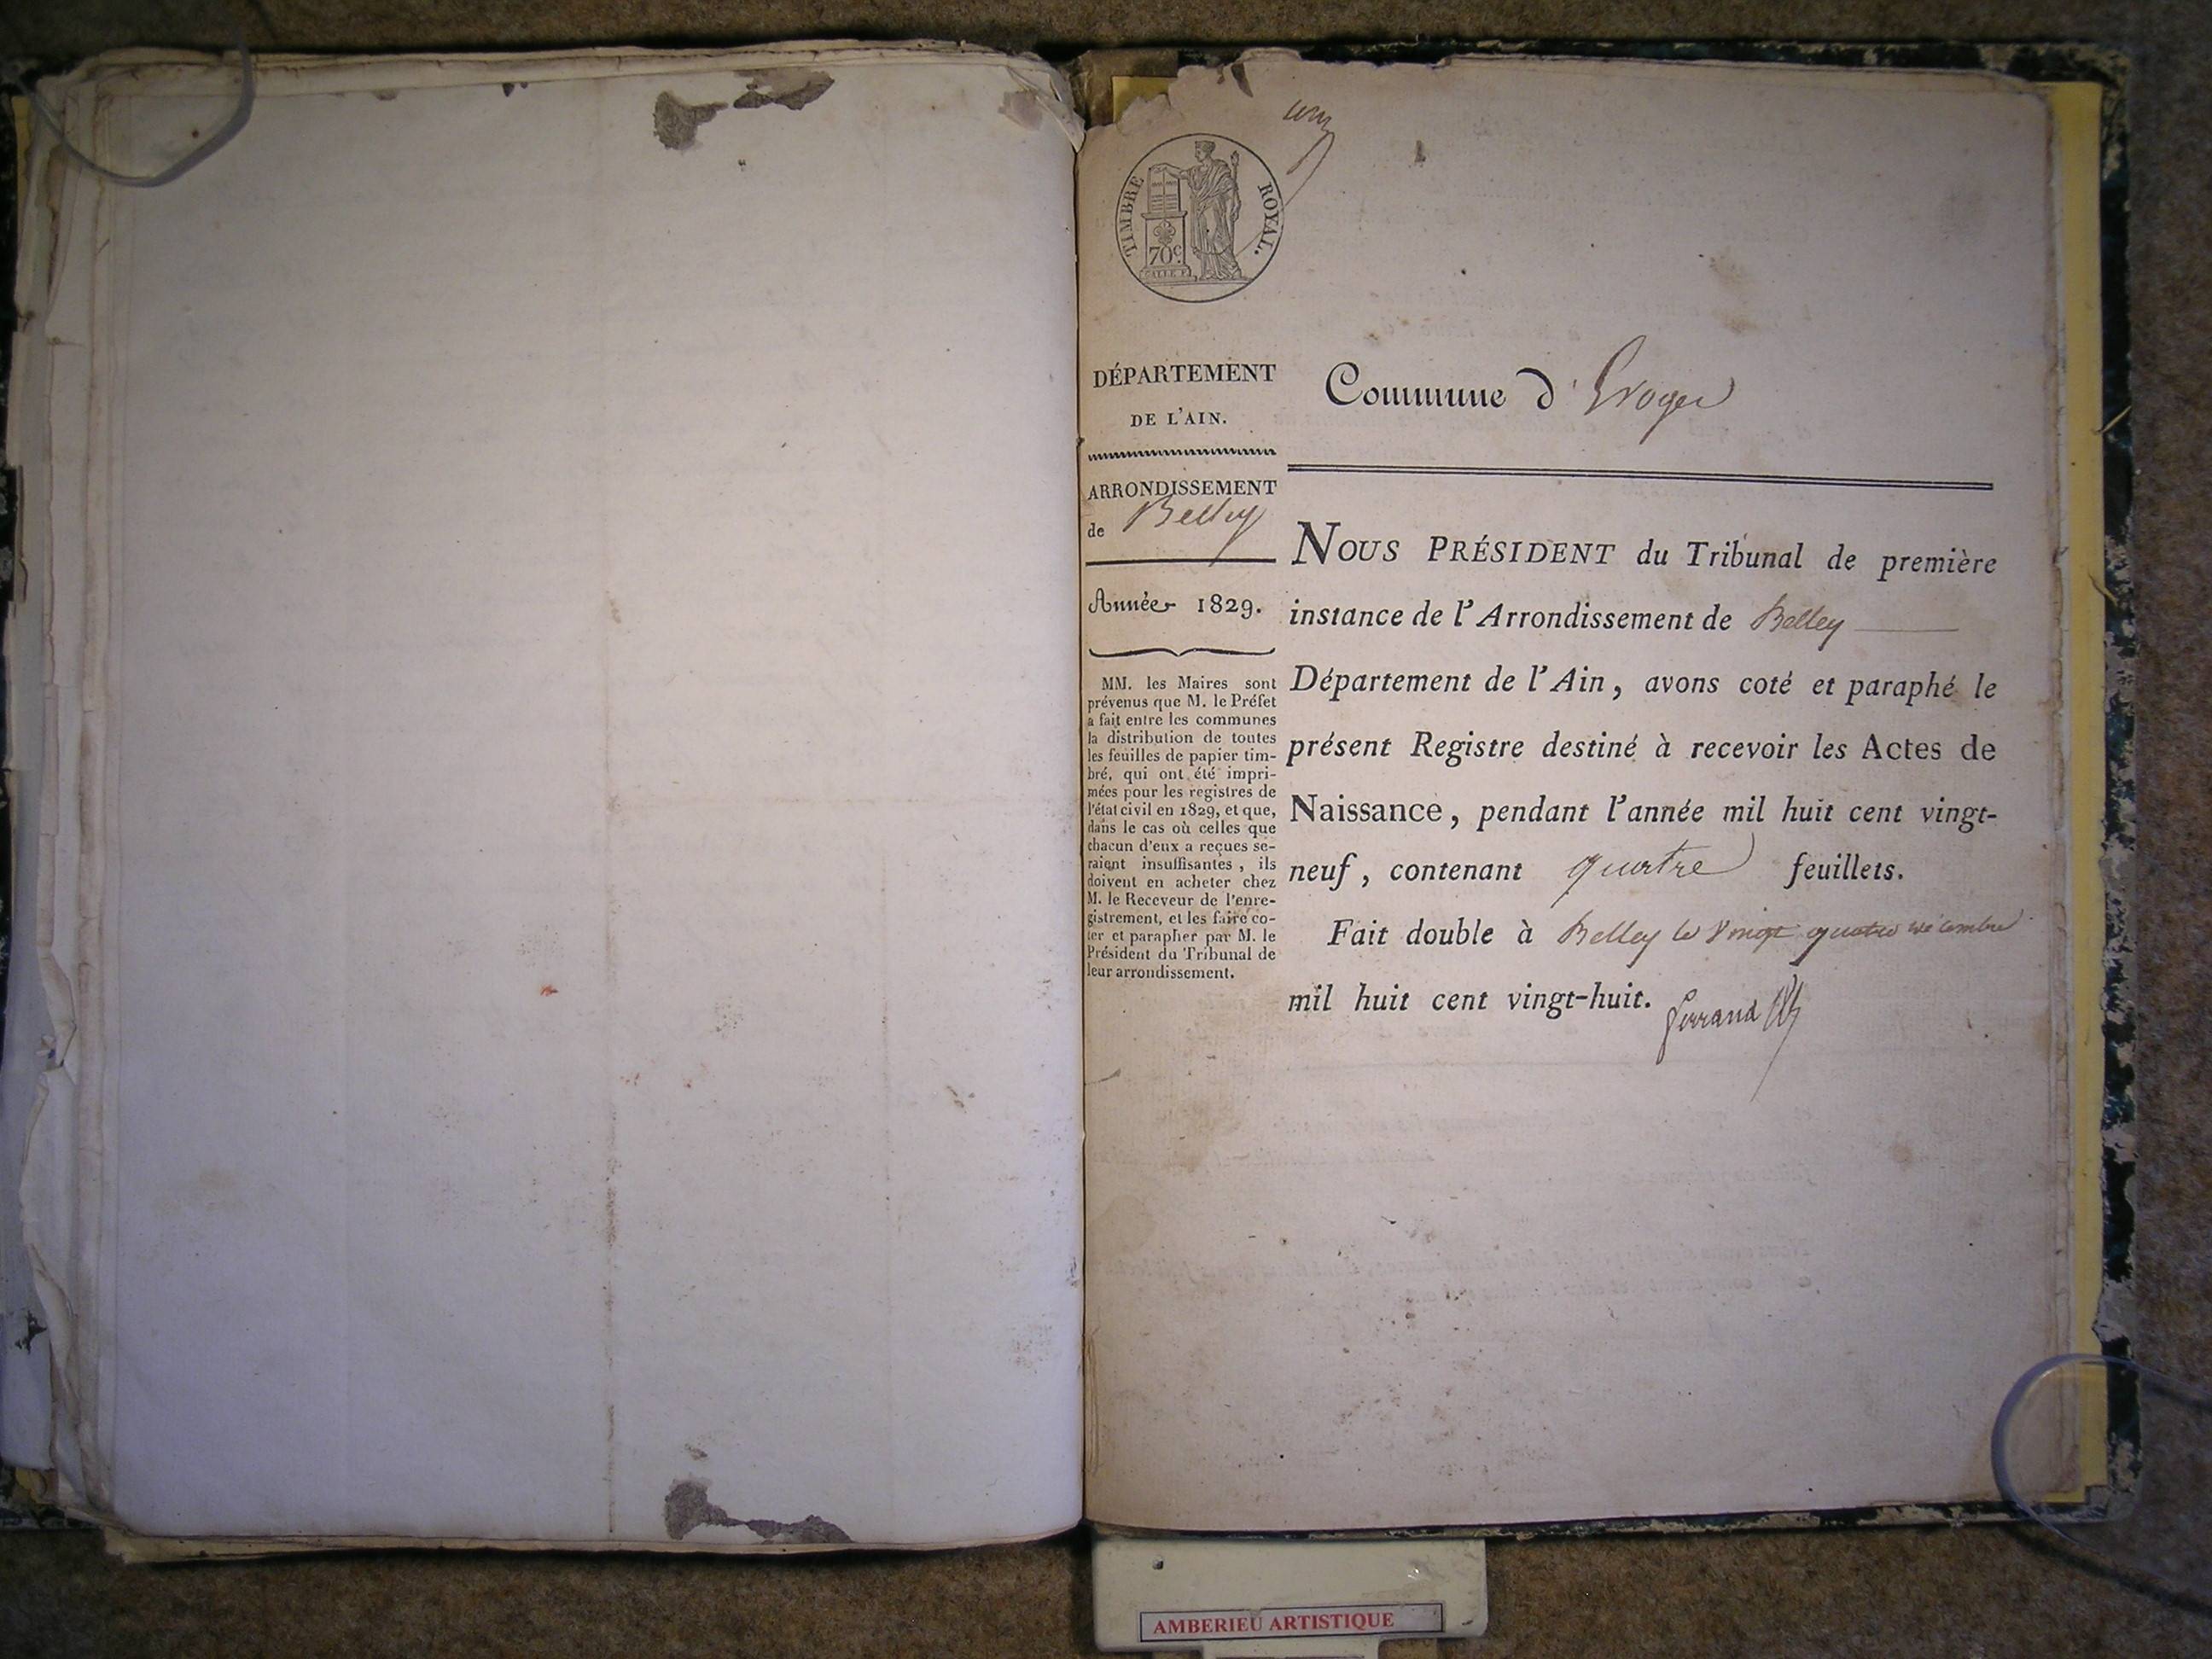 TIMBRE ROYAL.
70c.
DÉPARTEMENT
DE L'AIN.
ARRONDISSEMENT
de Belley
Année 1829.
MM. les Maires sont
prévenus que M. le Préfet
a fait entre les communes
la distribution de toutes
les feuilles de papier tim-
bré, qui ont été impri-
mées pour les registres de
l'état civil en 1829, et que,
dans le cas où celles que
chacun d'eux a reçues se-
raient insuffisantes, ils
doivent en acheter chez
M. le Receveur de l'enre-
gistrement, et les faire co-
ter et parapher par M. le
Président du Tribunal de
leur arrondissement.
Commune d'Evoges
NOUS PRÉSIDENT du Tribunal de première
instance de l'Arrondissement de Belley
Département de l'Ain, avons coté et paraphé le
présent Registre destiné à recevoir les Actes de
Naissance, pendant l'année mil huit cent vingt-
neuf, contenant quatre feuillets.
Fait double à Belley le vingt quatre décembre
mil huit cent vingt-huit.
AMBERIEU ARTISTIQUE